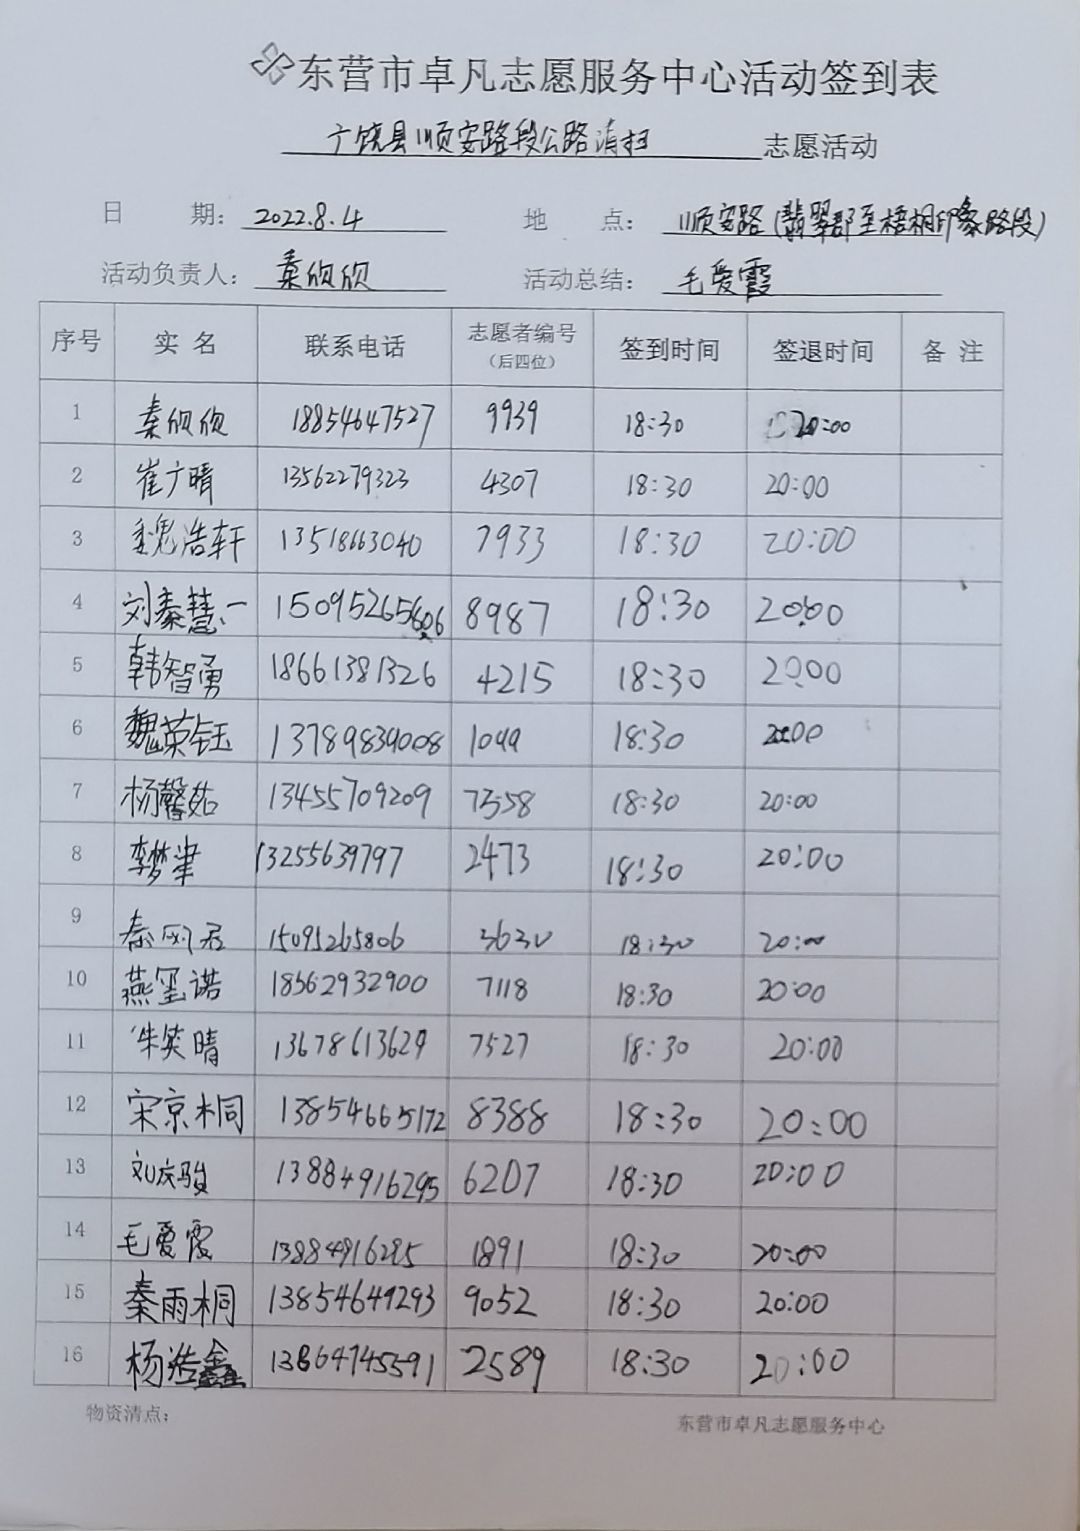 东营市卓凡志愿服务中心活动签到表
广饶县顺安路段公路清扫 志愿活动
日 期： 2022.8.4 地 点： 顺安路(翡翠郡至梧桐印象路段)
活动负责人： 秦欣欣 活动总结： 毛爱霞
序号 实 名 联系电话 志愿者编号（后四位） 签到时间 签退时间 备 注
1 秦欣欣 18854647527 9939 18:30 20:00
2 崔广晴 13562279323 4307 18:30 20:00
3 魏浩轩 13518663040 7933 18:30 20:00
4 刘秦慧一 15095265606 8987 18:30 20:00
5 韩智勇 18661381326 4215 18:30 20:00
6 魏荣钰 13789839008 1049 18:30 20:00
7 杨馨茹 13455709209 7358 18:30 20:00
8 李梦津 13255639797 2473 18:30 20:00
9 秦 君 15095265806 3630 18:30 20:00
10 燕玺诺 18562932900 7118 18:30 20:00
11 朱笑晴 13678613629 7527 18:30 20:00
12 宋京桐 13854665172 8388 18:30 20:00
13 刘庆骏 13884916295 6207 18:30 20:00
14 毛爱霞 13884916295 1891 18:30 20:00
15 秦雨桐 13854649293 9052 18:30 20:00
16 杨浩鑫 13864745591 2589 18:30 20:00
物资清点： 东营市卓凡志愿服务中心